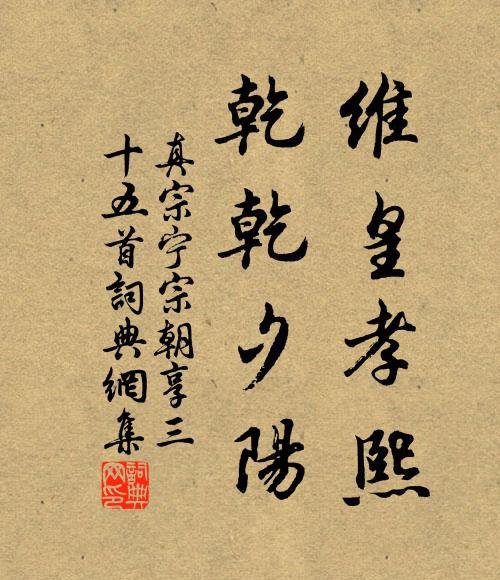 維皇孝熙
乾乾夕陽
真宗宁宗朝享三
十五首詞典網集
詞典網印